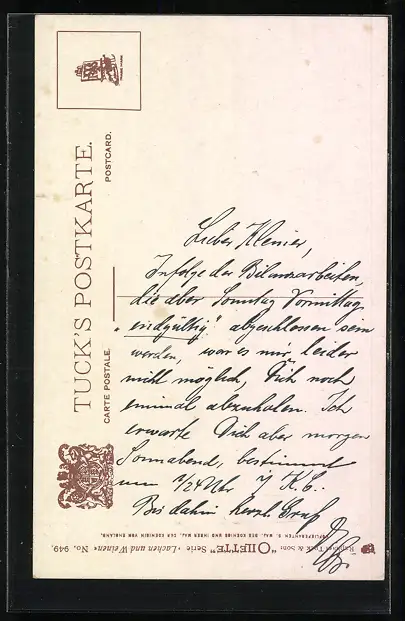 TUCK'S POSTKARTE.
CARTE POSTALE.
POSTCARD.
Lieber Kleiner,
Infolge der Bilanzarbeiten,
die aber Sonntag Vormittag
„endgültig" abgeschlossen sein
werden, war es mir leider
nicht möglich, Dich noch
einmal abzuholen. Ich
erwarte Dich aber morgen
Sonnabend, bestimmt
um
Bis dahin herzl. Gruß
Raphael Tuck & Sons "OILETTE" Serie „Lachen und Weinen" No. 949.
HOFLIEFERANTEN S. MAJ. DES KOENIGS UND IHRER MAJ. DER KOENIGIN VON ENGLAND.